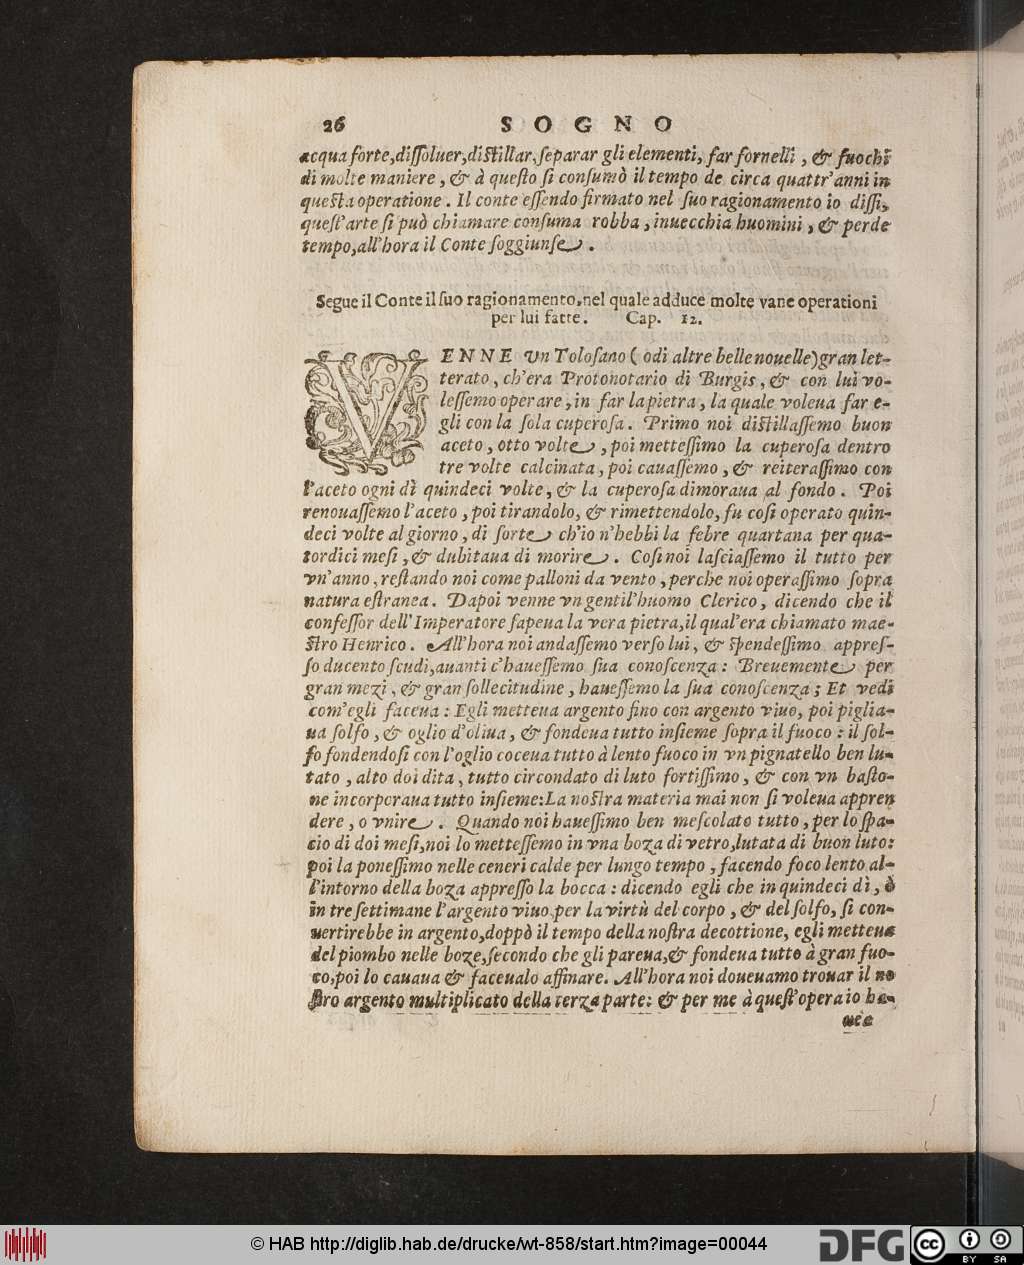 26 SOGNO
acqua forte, dissoluer, distillar, separar gli elementi, far fornelli, & fuochi
di molte maniere, & à questo si consumò il tempo de circa quattr'anni in
questa operatione. Il conte essendo firmato nel suo ragionamento io dissi,
quest'arte si può chiamare consuma robba, inuecchia huomini, & perde
tempo, all'hora il Conte soggiunse.
Segue il Conte il suo ragionamento, nel quale adduce molte vane operationi
per lui fatte. Cap. 12.
VENNE vn Tolosano (odi altre belle nouelle) gran let-
terato, ch'era Protonotario di Burgis, & con lui vo-
lessemo operare, in far la pietra, la quale voleua far e-
gli con la sola cuperosa. Primo noi distillassemo buon
aceto, otto volte, poi mettessimo la cuperosa dentro
tre volte calcinata, poi cauassemo, & reiterassimo con
l'aceto ogni dì quindeci volte, & la cuperosa dimoraua al fondo. Poi
renouassemo l'aceto, poi tirandolo, & rimettendolo, fu cosi operato quin-
deci volte al giorno, di sorte ch'io n'hebbi la febre quartana per qua-
tordici mesi, & dubitaua di morire. Cosi noi lasciassemo il tutto per
vn'anno, restando noi come palloni da vento, perche noi operassimo sopra
natura estranea. Dapoi venne vn gentil'huomo Clerico, dicendo che il
confessor dell'Imperatore sapeua la vera pietra, il qual'era chiamato mae-
stro Henrico. All'hora noi andassemo verso lui, & spendessimo appres-
so ducento scudi, auanti c'hauessemo sua conoscenza: Breuemente per
gran mezi, & gran sollecitudine, hauessemo la sua conoscenza; Et vedi
com'egli faceua: Egli metteua argento fino con argento viuo, poi piglia-
ua solfo, & oglio d'oliua, & fondeua tutto insieme sopra il fuoco: il sol-
fo fondendosi con l'oglio coceua tutto à lento fuoco in vn pignatello ben lu-
tato, alto doi dita, tutto circondato di luto fortissimo, & con vn basto-
ne incorporaua tutto insieme: La nostra materia mai non si voleua appren
dere, o vnire. Quando noi hauessimo ben mescolato tutto, per lo spa-
cio di doi mesi, noi lo mettessemo in vna boza di vetro, lutata di buon luto:
poi la ponessimo nelle ceneri calde per lungo tempo, facendo foco lento al-
l'intorno della boza appresso la bocca: dicendo egli che in quindeci dì, ò
in tre settimane l'argento viuo per la virtù del corpo, & del solfo, si con-
uertirebbe in argento, doppò il tempo della nostra decottione, egli metteua
del piombo nelle boze, secondo che gli pareua, & fondeua tutto à gran fuo-
co, poi lo cauaua & faceualo affinare. All'hora noi doueuamo trouar il no
stro argento multiplicato della terza parte: & per me à quest'opera io ha-
uea
© HAB http://diglib.hab.de/drucke/wt-858/start.htm?image=00044
DFG
cc BY SA